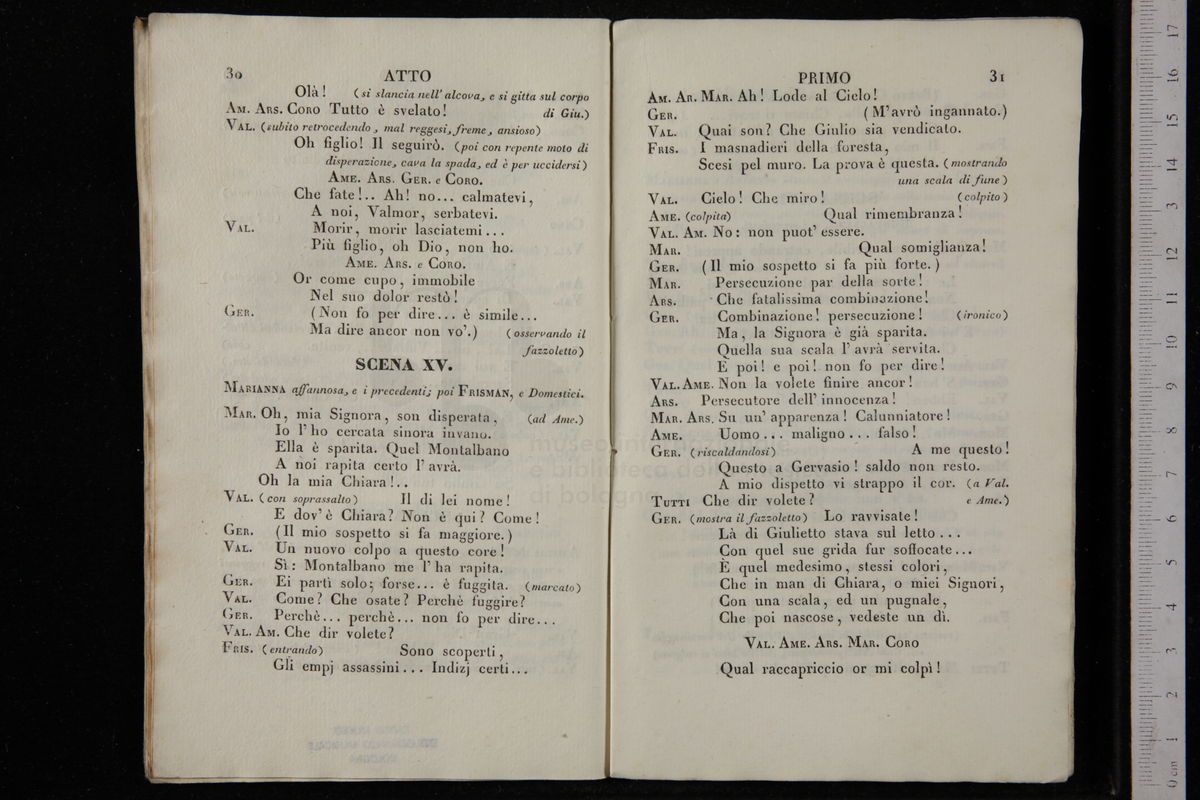 30 ATTO
Olà! (si slancia nell' alcova, e si gitta sul corpo
AM. ARS. CORO Tutto è svelato! di Giu.)
VAL. (subito retrocedendo, mal reggesi, freme, ansioso)
Oh figlio! Il seguirò. (poi con repente moto di
disperazione, cava la spada, ed è per uccidersi)
AME. ARS. GER. e CORO.
Che fate!.. Ah! no... calmatevi,
A noi, Valmor, serbatevi.
VAL. Morir, morir lasciatemi...
Più figlio, oh Dio, non ho.
AME. ARS. e CORO.
Or come cupo, immobile
Nel suo dolor restò!
GER. (Non fo per dire... è simile...
Ma dire ancor non vo'.) (osservando il
fazzoletto)
SCENA XV.
MARIANNA affannosa, e i precedenti; poi FRISMAN, e Domestici.
MAR. Oh, mia Signora, son disperata, (ad Ame.)
Io l'ho cercata sinora invano.
Ella è sparita. Quel Montalbano
A noi rapita certo l'avrà.
Oh la mia Chiara!..
VAL. (con soprassalto) Il di lei nome!
E dov'è Chiara? Non è qui? Come!
GER. (Il mio sospetto si fa maggiore.)
VAL. Un nuovo colpo a questo core!
Sì: Montalbano me l'ha rapita.
GER. Ei partì solo; forse... è fuggita. (marcato)
VAL. Come? Che osate? Perchè fuggire?
GER. Perchè... perchè... non fo per dire...
VAL. AM. Che dir volete?
FRIS. (entrando) Sono scoperti,
Gli empj assassini... Indizj certi...
PRIMO 31
AM. AR. MAR. Ah! Lode al Cielo!
GER. (M'avrò ingannato.)
VAL. Quai son? Che Giulio sia vendicato.
FRIS. I masnadieri della foresta,
Scesi pel muro. La prova è questa. (mostrando
una scala di fune)
VAL. Cielo! Che miro! (colpito)
AME. (colpita) Qual rimembranza!
VAL. AM. No: non puot' essere.
MAR. Qual somiglianza!
GER. (Il mio sospetto si fa più forte.)
MAR. Persecuzione par della sorte!
ARS. Che fatalissima combinazione!
GER. Combinazione! persecuzione! (ironico)
Ma, la Signora è già sparita.
Quella sua scala l'avrà servita.
E poi! e poi! non fo per dire!
VAL. AME. Non la volete finire ancor!
ARS. Persecutore dell'innocenza!
MAR. ARS. Su un'apparenza! Calunniatore!
AME. Uomo... maligno... falso!
GER. (riscaldandosi) A me questo!
Questo a Gervasio! saldo non resto.
A mio dispetto vi strappo il cor. (a Val.
TUTTI Che dir volete? e Ame.)
GER. (mostra il fazzoletto) Lo ravvisate!
Là di Giulietto stava sul letto...
Con quel sue grida fur soffocate...
È quel medesimo, stessi colori,
Che in man di Chiara, o miei Signori,
Con una scala, ed un pugnale,
Che poi nascose, vedeste un dì.
VAL. AME. ARS. MAR. CORO
Qual raccapriccio or mi colpì!